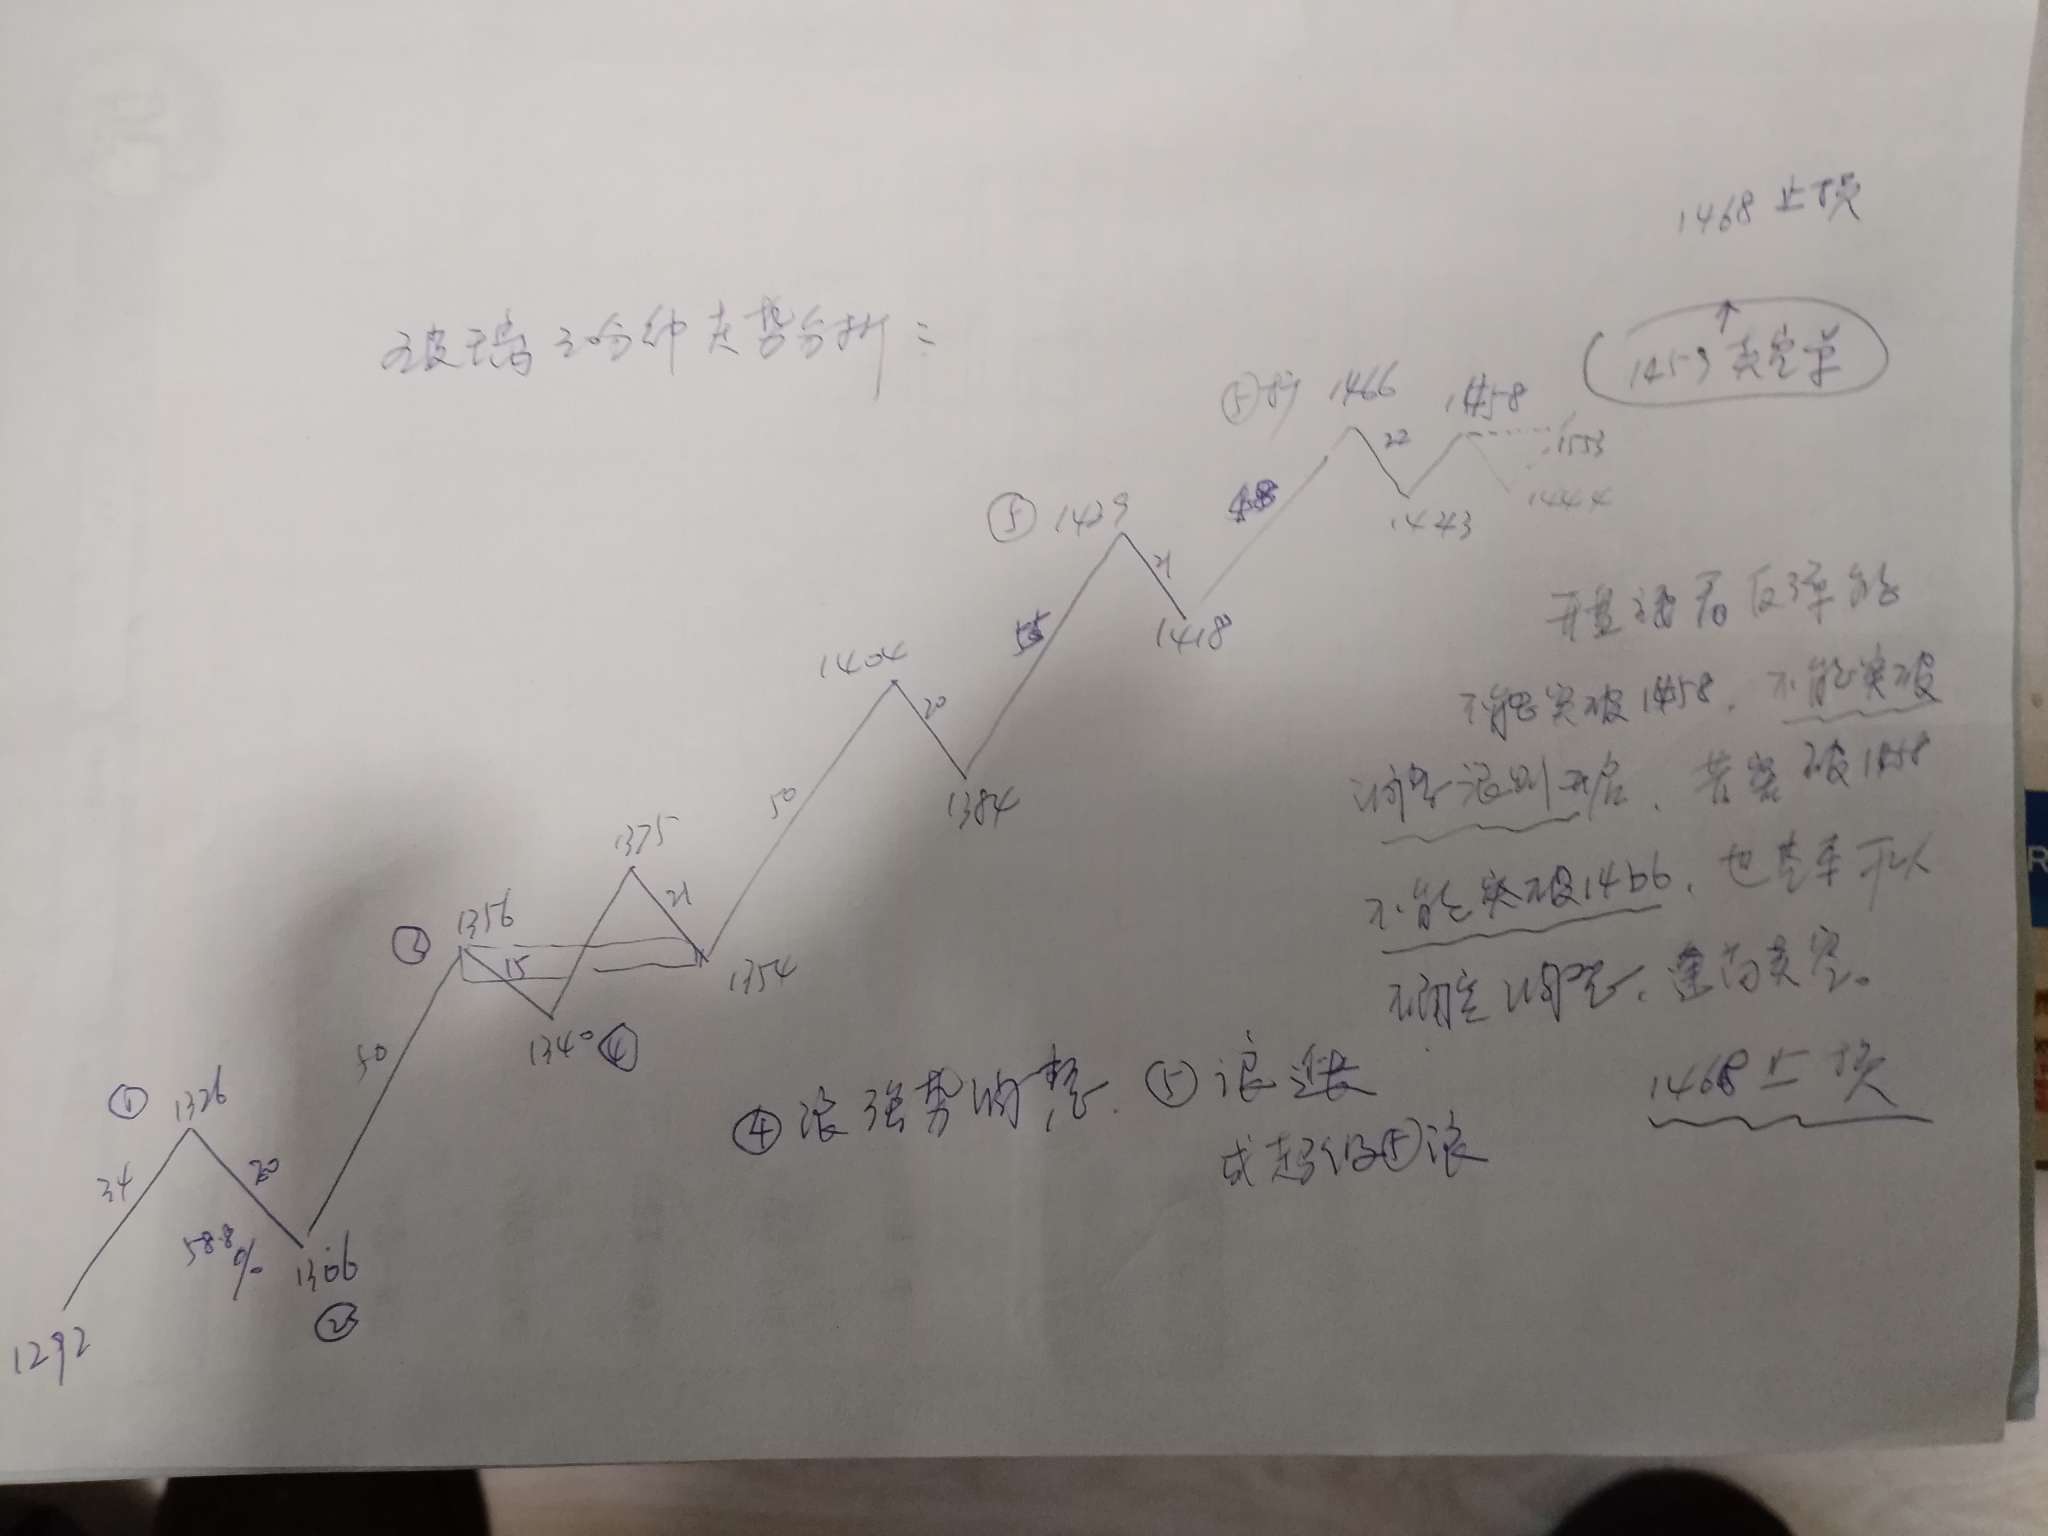 1468 止损
玻璃30分钟走势分析：
1459 卖空单
⑤ 1466
1458
22
1553
1444
1443
⑤ 1439
21
1418
1404
20
1384
50
1375
21
1354
③ 1356
15
1340 ④
50
① 1326
34
20
58.8%
1306
②
1292
开盘后反弹能
不能突破1458，不能突破
调整浪则开启，若突破1458
不能突破1466，也基本可以
确定调整，逢高卖空。
1468 止损
④浪强势调整，⑤浪延长
或超级⑤浪